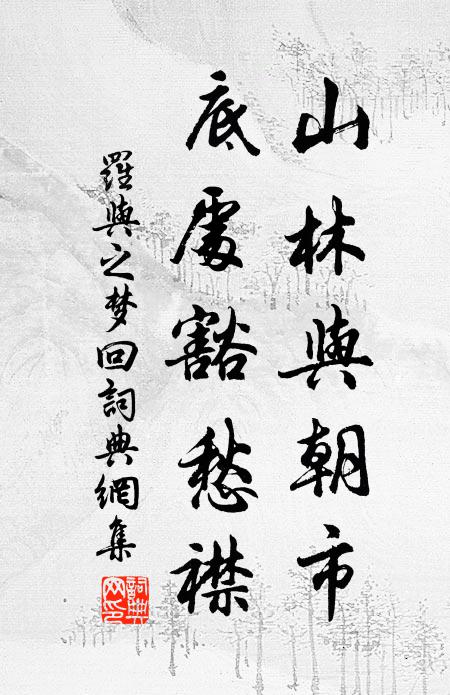 山林與朝市
底處豁愁襟
羅與之梦回詞典網集
詞典网印